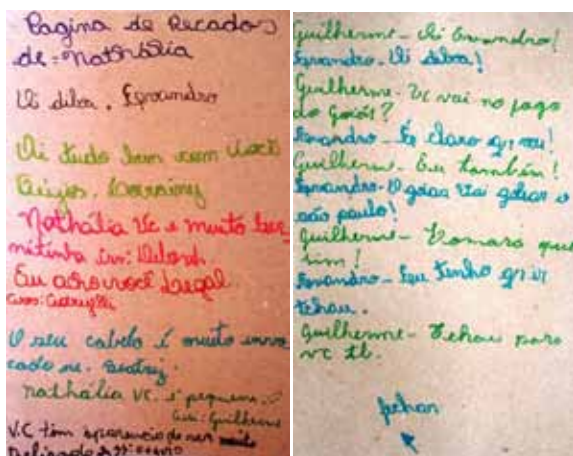 Pagina de Recados
de = Nathália
Oi diba, Epvandro
Oi tudo bem com você
Beijos. Lorrainy
Nathália Vc e muito bu
nitinha
Eu acho você Legal.
O seu cabelo é muito inro
cado ne. Beatriz.
nathália VC. é pequena.
Ass: Guilherme
V.C tem aparencia de ser muito
Guilherme - Oi Evandro!
Evandro - Oi diba!
Guilherme - Vc vai no jogo
do goiás?
Evandro - É claro qr vou!
Guilherme - Eu também!
Evandro - O goias vai golear o
são paulo!
Guilherme - Tomara que
sim!
Evandro - Eeu tenho qr ir
tchau.
Guilherme - Tchau para
vc tb.
fechar